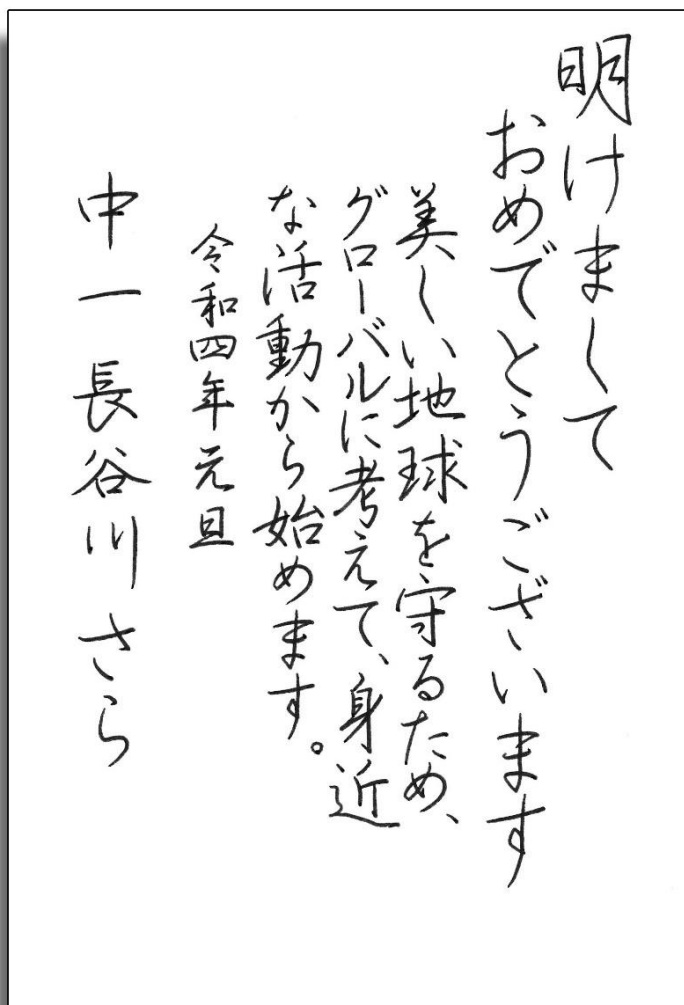 明けまして
おめでとうございます
美しい地球を守るため、
グローバルに考えて、身近
な活動から始めます。
令和四年元旦
中一 長谷川さら